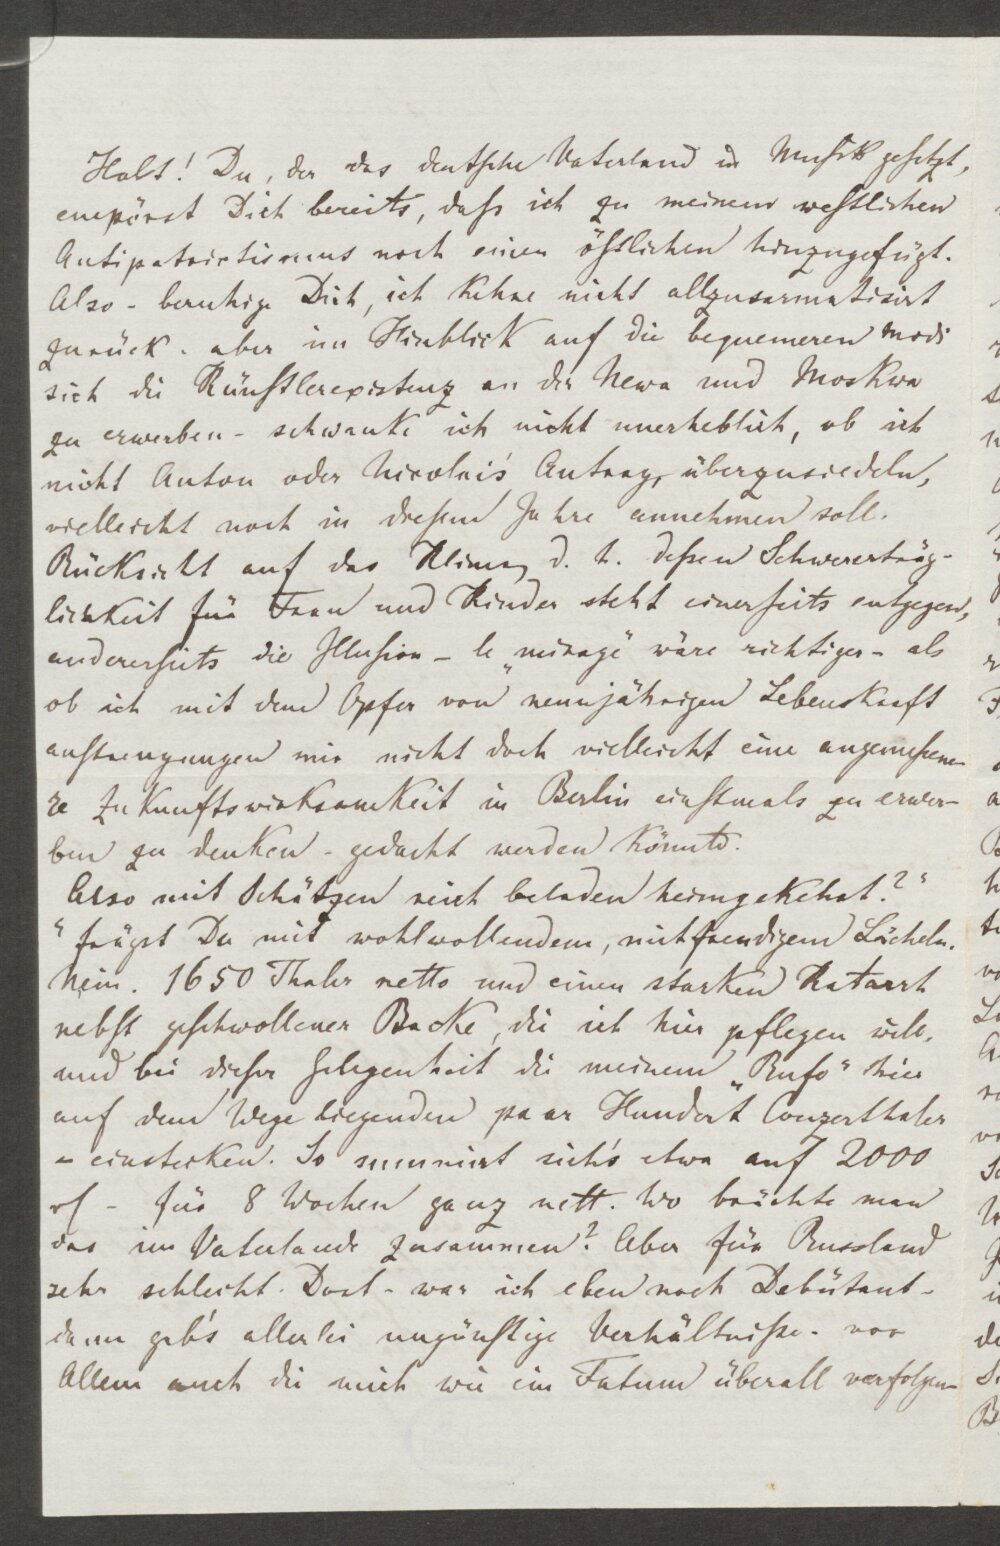 Halt! Du, der das deutsche Vaterland in Musik gesetzt,
empörst Dich bereits, daß ich zu meinem westlichen
Antipatriotismus noch einen östlichen hinzugefügt.
Also – beruhige Dich, ich kehre nicht allzusarmatisirt
zurück. aber im Hinblick auf die bequemeren Modi
sich die Künstlerexistenz an der Newa und Moskwa
zu erwerben – schwanke ich nicht unerheblich, ob ich
nicht Anton oder Nicolai's Antrag, überzusiedeln,
vielleicht noch in diesem Jahre annehmen soll.
Rücksicht auf das Klima, d. h. dessen Schwererträg-
lichkeit für Frau und Kinder steht einerseits entgegen,
andererseits die Illusion – le „mirage" wäre richtiger – als
ob ich mit dem Opfer von neunjährigen Lebenskraft
anstrengungen mir nicht doch vielleicht eine angemessene-
re Zukunftswirksamkeit in Berlin einstmals zu erwer-
ben zu denken – gedacht werden könnte.
Also mit Schätzen reich beladen heimgekehrt?"
" frägst Du mit wohlwollendem, mitfreudigem Lächeln.
Nein. 1650 Thaler netto und einen starken Katarrh
nebst geschwollener Backe, die ich hier pflegen will,
und bei dieser Gelegenheit die meinem „Rufe" hier
auf dem Wege liegenden paar Hundert Conzertthaler
– einstecken. So summirt sich's etwa auf 2000
rℓ – für 8 Wochen ganz nett. Wo brächte man
das im Vaterlande zusammen? Aber für Russland
sehr schlecht. Dort – war ich eben noch Debütant –
dann gab's allerlei ungünstige Verhältnisse – vor
Allem auch die mich wie ein Fatum überall verfolgen-